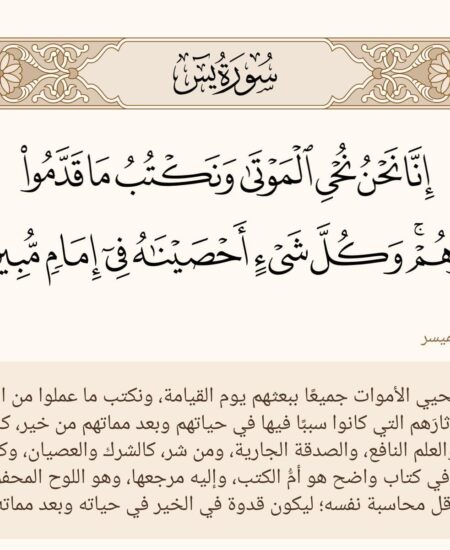 سُورَةُ يسٓ
إِنَّا نَحۡنُ نُحۡيِ ٱلۡمَوۡتَىٰ وَنَكۡتُبُ مَا قَدَّمُواْ
هُمۡۚ وَكُلَّ شَيۡءٍ أَحۡصَيۡنَٰهُ فِيٓ إِمَامٖ مُّبِي
ميسر
حيي الأموات جميعًا ببعثهم يوم القيامة، ونكتب ما عملوا من ا
ثارَهم التي كانوا سببًا فيها في حياتهم وبعد مماتهم من خير، ك
العلم النافع، والصدقة الجارية، ومن شر، كالشرك والعصيان، وك
في كتاب واضح هو أمُّ الكتب، وإليه مرجعها، وهو اللوح المحفو
قل محاسبة نفسه؛ ليكون قدوة في الخير في حياته وبعد مماته